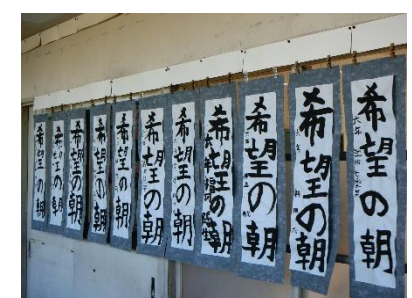 希望の朝
希望の朝
希望の朝
希望の朝
希望の朝
希望の朝
希望の朝
希望の朝
希望の朝
希望の朝
六年
希望の朝